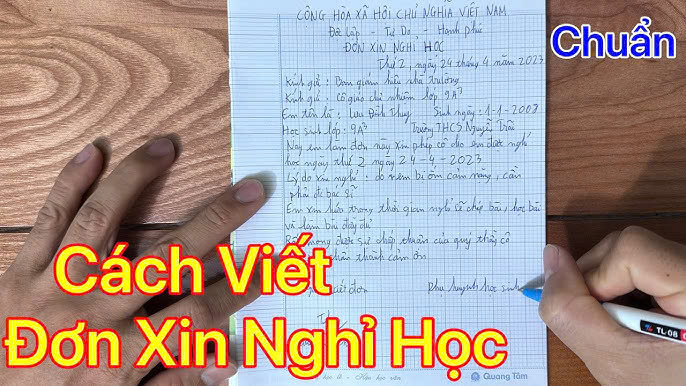 CỘNG HÒA XÃ HỘI CHỦ NGHĨA VIỆT NAM
Độc Lập - Tự Do - Hạnh Phúc
ĐƠN XIN NGHỈ HỌC
Thứ 2, ngày 24 tháng 4 năm 2023
Chuẩn
Kính gửi : Ban giám hiệu nhà trường
Kính gửi : Cô giáo chủ nhiệm lớp 9A³
Em tên là : Lưu Đình Thuy Sinh ngày : 1-1-2008
Học sinh lớp : 9A³ Trường THCS Nguyễn Trãi
Nay em làm đơn này xin phép cô cho em được nghỉ
học ngày thứ 2 ngày 24-4-2023
Lý do xin nghỉ : do em bị ốm cảm nặng, cần
phải đi bác sĩ
Em xin hứa trong thời gian nghỉ sẽ chép bài, học bài
và làm bài đầy đủ
mong được sự chấp thuận của quý thầy cô
chân thành cảm ơn
viết đơn phụ huynh học sinh
Cách Viết
Đơn Xin Nghỉ Học
TL-08
Quang Tâm